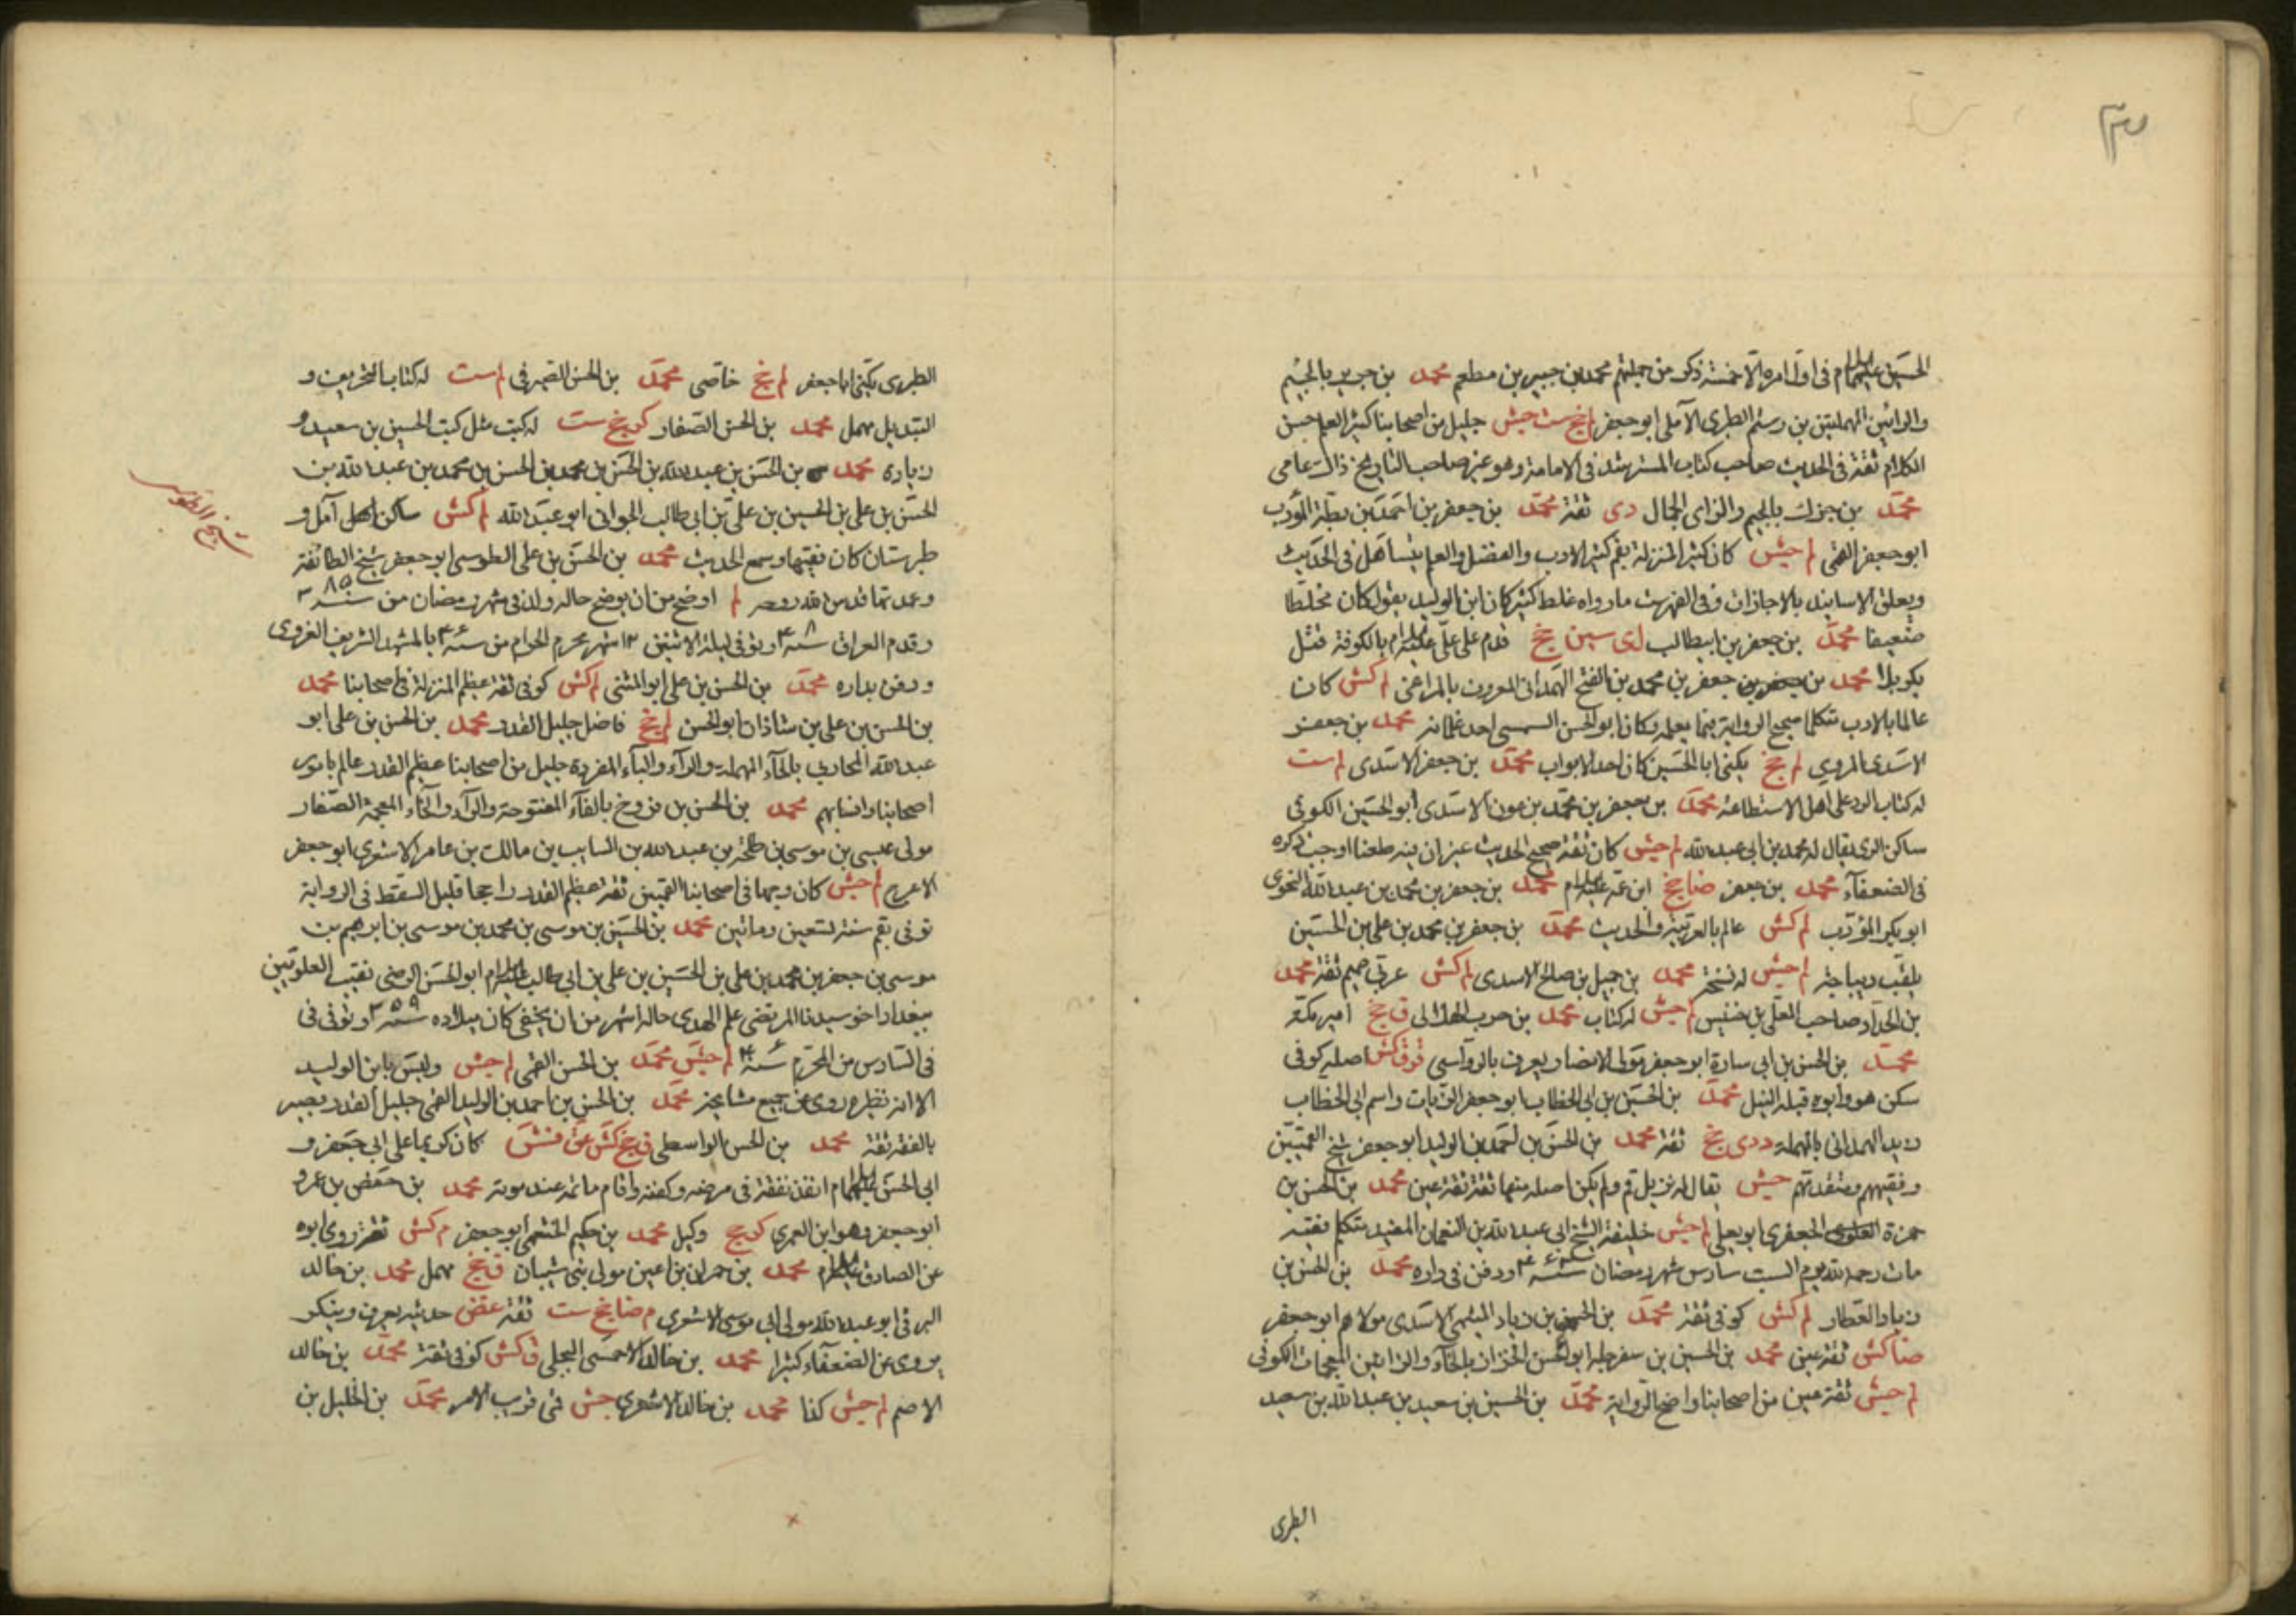 الحسين عليهما السلام في اول امره الا خمسة ذكر من جملتهم محمد بن جبير بن مطعم محمد بن جرير بالجيم
والرائين المهملتين بن رستم الطبري الآملي ابو جعفر لم خج ست جيش جليل من اصحابنا كثير العلم حسن
الكلام ثقة في الحديث صاحب كتاب المسترشد في الامامة وهو غير صاحب التاريخ ذاك عامي
محمد بن جزك بالجيم والزاى الجمال دى ثقة محمد بن جعفر بن احمد بن بطة المؤدب
ابو جعفر القمي لم جيش كان كبير المنزلة بقم كثير الادب والفضل والعلم يتساهل في الحديث
ويعلق الاسانيد بالاجازات وفي الفهرست ما رواه غلط كثير كان ابن الوليد يقول كان مخلطا
ضعيفا محمد بن جعفر بن ابيطالب لى سين خج قدم على علي عليه السلام بالكوفة قتل
بكربلا محمد بن جعفر بن محمد بن الفتح الهمداني المعروف بالمراغي لم كش كان
عالما بالادب متكلما صحيح الرواية فيما يعلمه وكان ابو الحسن السمسمى احد غلمانه محمد بن جعفر
الاسدى المروي لم خج يكنى ابا الحسين كان احد الابواب محمد بن جعفر الاسدى لم ست
له كتاب الرد على اهل الاستطاعة محمد بن جعفر بن محمد بن عون الاسدى ابو الحسين الكوفي
ساكن الرى يقال له محمد بن ابي عبد الله لم جيش كان ثقة صحيح الحديث غير ان فيه طعنا اوجب ذكره
في الضعفاء محمد بن جعفر ضا خج ابن عمه عليه السلام محمد بن جعفر بن محمد بن عبد الله النحوى
ابو بكر المؤدب لم كش عالم بالعربية والحديث محمد بن جعفر بن محمد بن علي بن الحسين
يلقب ديباجة لم جيش له نسخة محمد بن جميل بن صالح الاسدى لم كش عربي صميم ثقة محمد
بن الحداد صاحب المعلى بن خنيس لم جيش له كتاب محمد بن حرب الهلالى ق خج امير مكة
محمد بن الحسن بن ابي سارة ابو جعفر مولى الانصار يعرف بالرواسى قرق كش اصله كوفي
سكن هو وابوه قبله النيل محمد بن الحسين بن ابي الخطاب ابو جعفر الزيات واسم ابي الخطاب
زيد الهمدانى بالمهملة د دى خج ثقة محمد بن الحسن بن احمد بن الوليد ابو جعفر شيخ القميين
وفقيههم ومتقدمهم جيش يقال له نزيل قم ولم يكن اصله منها ثقة ثقة عين محمد بن الحسن بن
حمزة العلوى الجعفرى ابو يعلى لم جيش خليفة الشيخ ابي عبد الله بن النعمان المفيد متكلم فقيه
مات رحمه الله يوم السبت سادس شهر رمضان ودفن في داره محمد بن الحسن بن
زياد العطار لم كش كوفي ثقة محمد بن الحسن بن زياد الميثمي الاسدى مولاهم ابو جعفر
ضا كش ثقة عين محمد بن الحسين بن سفرجلة ابو الحسن الخزاز بالخاء والزائين المعجمات الكوفي
لم جيش ثقة عين من اصحابنا واضح الرواية محمد بن الحسين بن سعيد بن عبد الله بن سعيد
الطبرى
الطبرى يكنى ابا جعفر لم خج خاصى محمد بن الحسن الصيرفي لم ست له كتاب التحريف و
التبديل مهمل محمد بن الحسن الصفار كر خج ست له كتب مثل كتب الحسين بن سعيد و
زيادة محمد بن الحسن بن عبد الله بن الحسن بن محمد بن الحسن بن محمد بن عبد الله بن
الحسن بن علي بن الحسين بن علي بن ابي طالب الجواني ابو عبد الله لم كش ساكن آمل و
طبرستان كان فقيها وسمع الحديث محمد بن الحسن بن علي الطوسى ابو جعفر شيخ الطائفة
وعمدتها قدس الله روحه لم اوضح من ان يوضح حاله ولد في شهر رمضان من سنة ٣٨٥
وقدم العراق سنة ٤٠٨ وتوفي ليلة الاثنين ١٢ شهر محرم الحرام من سنة بالمشهد الشريف الغروى
ودفن بداره محمد بن الحسن بن علي ابو المثنى لم كش كوفي ثقة عظيم المنزلة في اصحابنا محمد
بن الحسن بن علي بن شاذان ابو الحسن لم خج فاضل جليل القدر محمد بن الحسن بن علي ابو
عبد الله المحاربي بالحاء المهملة والراء والباء المفردة جليل من اصحابنا عظيم القدر عالم بامور
اصحابنا وانسابهم محمد بن الحسن بن فروخ بالفاء المفتوحة والراء والخاء المعجمة الصفار
مولى عيسى بن موسى بن طلحة بن عبد الله بن السايب بن مالك بن عامر الاشعرى ابو جعفر
الاعرج لم جيش كان وجها في اصحابنا القميين ثقة عظيم القدر راجحا قليل السقط في الرواية
توفي بقم سنة تسعين ومائتين محمد بن الحسين بن موسى بن محمد بن موسى بن ابرهيم بن
موسى بن جعفر بن محمد بن علي بن الحسين بن علي بن ابي طالب عليه السلام ابو الحسن الرضى نقيب العلويين
ببغداد اخو سيدنا المرتضى علم الهدى حاله اشهر من ان يخفى كان ميلاده سنة ٣٥٩ وتوفي في
في السادس من المحرم سنة ٤٠٦ لم جيش محمد بن الحسن القمي لم جيش وليس بابن الوليد
الا انه نظيره روى عن جميع مشايخه محمد بن الحسن بن احمد بن الوليد القمي جليل القدر بصير
بالفقه ثقة محمد بن الحسن الواسطى ق خج كش عن فش كان كريما على ابي جعفر و
ابي الحسن عليهما السلام انفذ نفقة في مرضه وكفنه واقام ماتمه عند موته محمد بن حفص بن عمرو
ابو جعفر وهو ابن العمري كر خج وكيل محمد بن حكيم الخثعمي ابو جعفر م كش ثقة روى ابوه
عن الصادق عليه السلام محمد بن حمران بن اعين مولى بني شيبان ق خج مهمل محمد بن خالد
البرقي ابو عبد الله مولى ابي موسى الاشعري م ضا خج ست ثقة غض حديثه يعرف وينكر
يروى عن الضعفاء كثيرا محمد بن خالد الاحمسى البجلي ق كش كوفي ثقة محمد بن خالد
الاصم لم جيش كذا محمد بن خالد الاشعرى جش قمي قريب الامر محمد بن الخليل بن
شيخ الطوسى